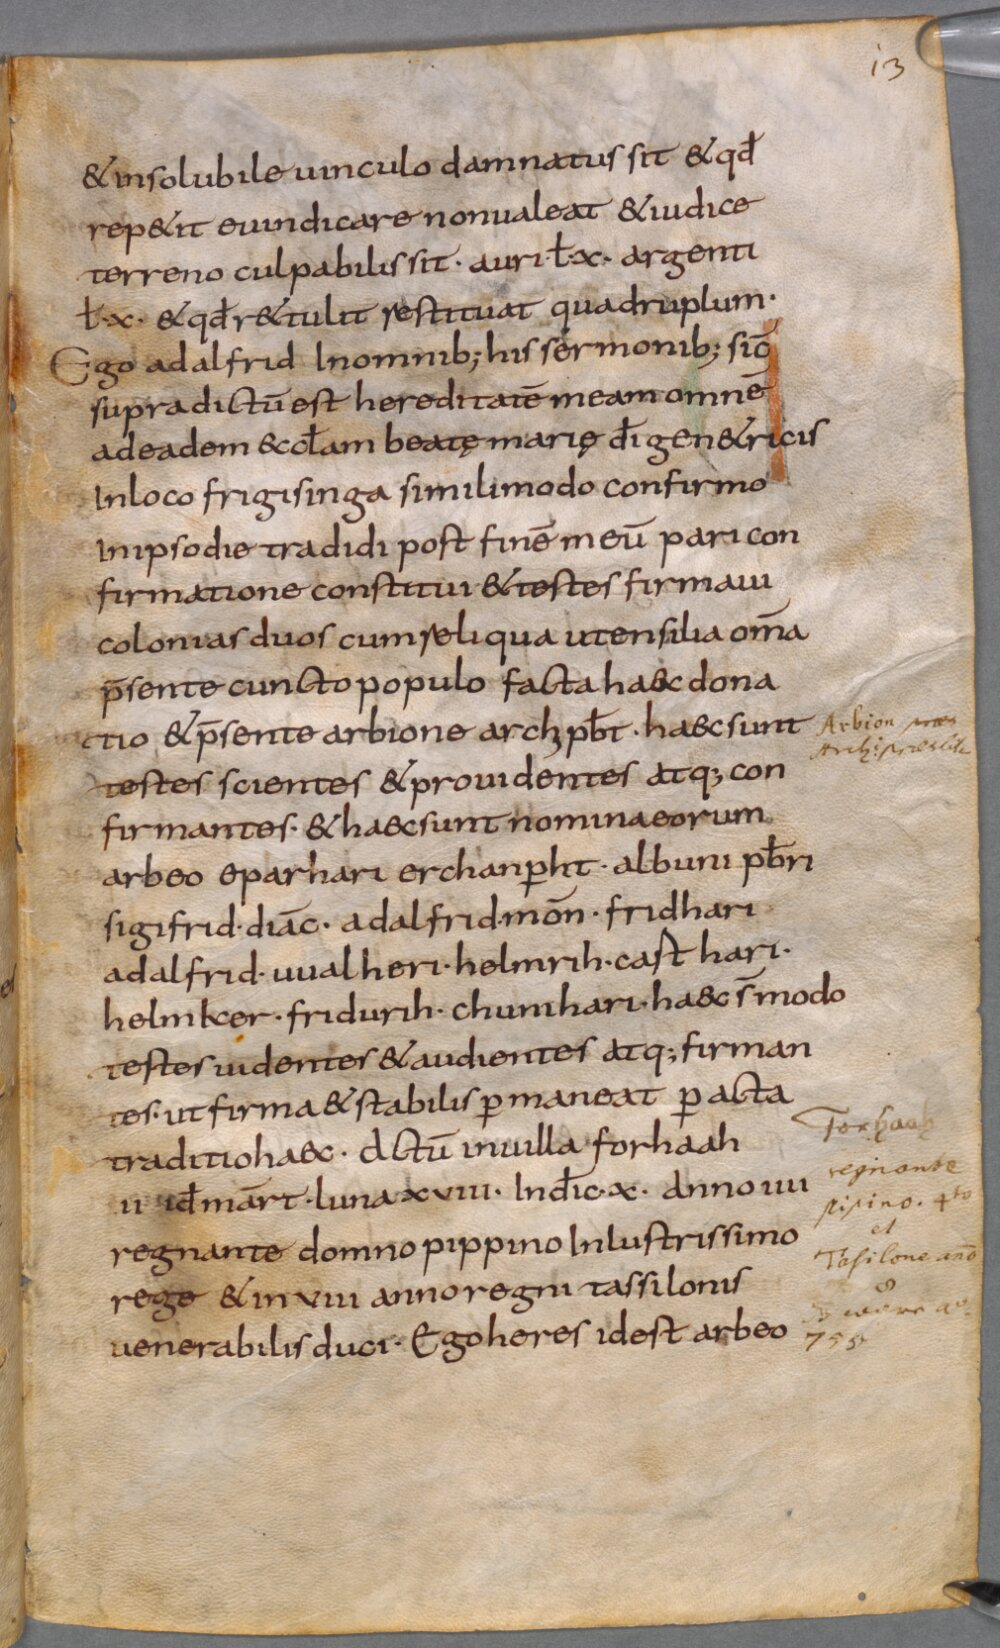 13
& insolubile uinculo damnatus sit & qđ
rep&it euindicare non ualeat & iudice
terreno culpabilis sit · auri · ł · x · argenti
ł · x · & qđ r&tulit restituat quadruplum ·
Ego adalfrid In omnib; his sermonib; sic̄
supra dictū est hereditatē meam omnē
ad eadem &ccłam beatę marię đi gen&ricis
In loco frigisinga simili modo confirmo
In ipso die tradidi post finē meū pari con
firmatione constitui & testes firmaui
colonias duos cum reliqua utensilia om̄a
p̄sente cuncto populo facta haec dona
tio & p̄sente arbione archpb̄t · haec sunt
testes scientes & prouidentes atq; con
firmantes · & haec sunt nomina eorum
arbeo eparhari erchanp̱ht · albuni pb̄ri
sigifrid · diac̄ · adalfrid · mōn · fridhari
adalfrid · uualheri · helmrih · casthari ·
helmker · fridurih · chunihari · haec s̄ modo
testes uidentes & audientes atq; firman
tes · ut firma & stabilis p̱maneat p̱acta
traditio haec · actū in uilla forhaah
II iđ mār̄t · luna xviii · Inđic · x · Anno IIII
regnante domno pippino Inlustrissimo
rege & in viii anno regni tassilonis
uenerabilis duci · Ego heres id est arbeo
Arbion
Archipresbite
Forhaah
regnante
pipino . 4to
et
Tasilone anō
8
755